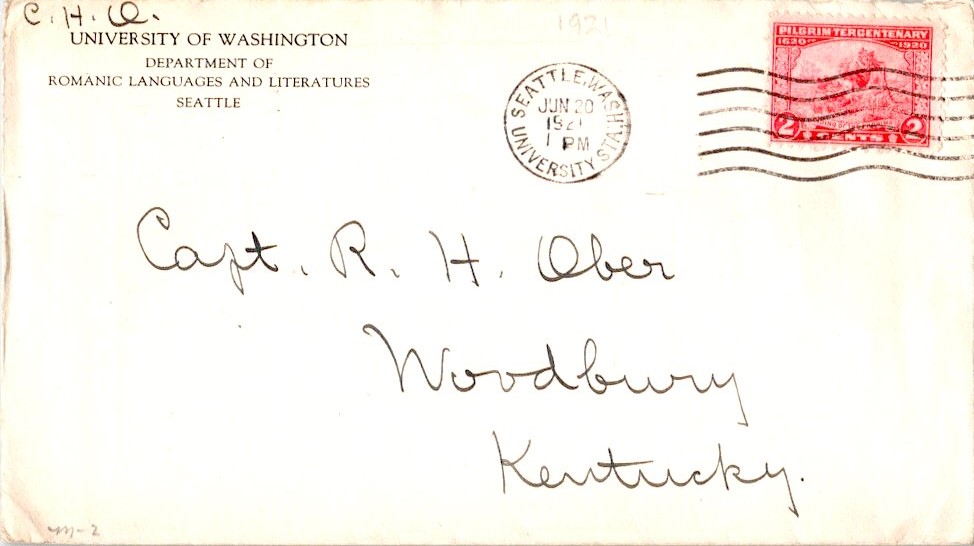 C. H. O.
1921
UNIVERSITY OF WASHINGTON
DEPARTMENT OF
ROMANIC LANGUAGES AND LITERATURES
SEATTLE
SEATTLE, WASH.
JUN 20
1921
1 PM
UNIVERSITY STA.
PILGRIM TERCENTENARY
1620 1920
2 CENTS 2
Capt. R. H. Ober
Woodbury
Kentucky.